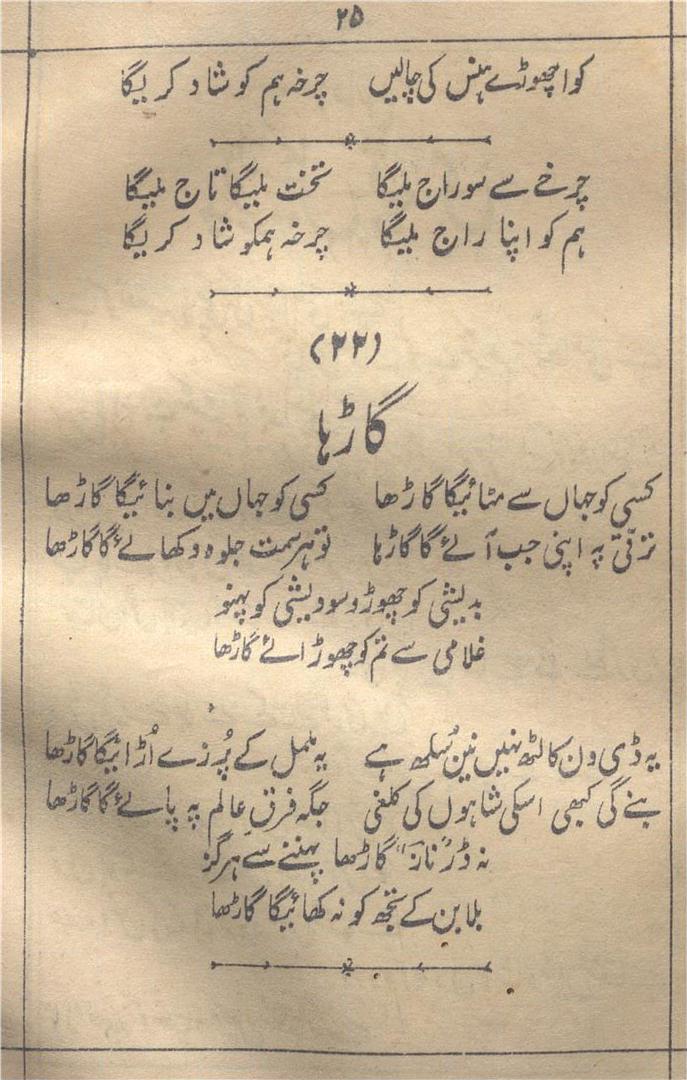 ۲۵
کوا چھوڑے ہنس کی چالیں چرخہ ہم کو شاد کریگا
چرخے سے سوراج ملیگا تخت ملیگا تاج ملیگا
ہم کو اپنا راج ملیگا چرخہ ہمکو شاد کریگا
(۲۲)
گاڑہا
کسی کو جہاں سے مٹائیگا گاڑھا کسی کو جہاں میں بنائیگا گاڑھا
ترقی پہ اپنی جب آئے گا گاڑہا تو ہر سمت جلوہ دکھائے گا گاڑھا
بدیشی کو چھوڑو سودیشی کو پہنو
غلامی سے تم کو چھوڑائے گاڑھا
یہ ڈی ون کا لٹھ نہیں نین سُکھ ہے یہ ململ کے پُرزے اُڑائیگا گاڑھا
بنے گی کبھی اسکی شاہوں کی کلغی جگہ فرقِ عالم پہ پائے گا گاڑھا
نہ ڈر "ناز" گاڑھا پہننے سے ہرگز
بلا بن کے تجھ کو نہ کھائیگا گاڑھا